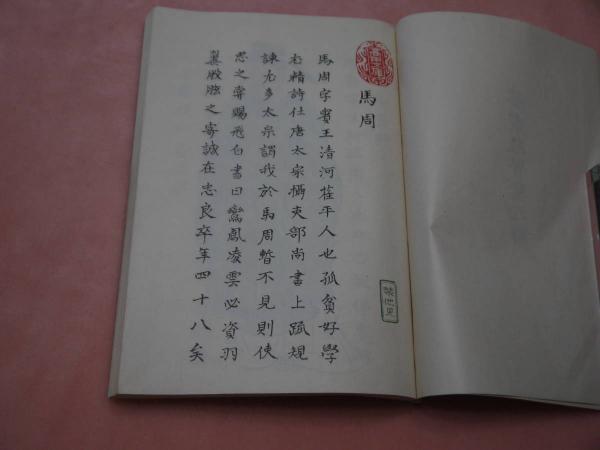 馬周
馬周字賓王清河茌平人也孤貧好學
尤精詩仕唐太宗攝吏部尚書上疏規
諫尤多太宗謂我於馬周暫不見則便
思之專賜飛白書曰鸞鳳凌雲必資羽
翼股肱之寄誠在忠良卒年四十八矣